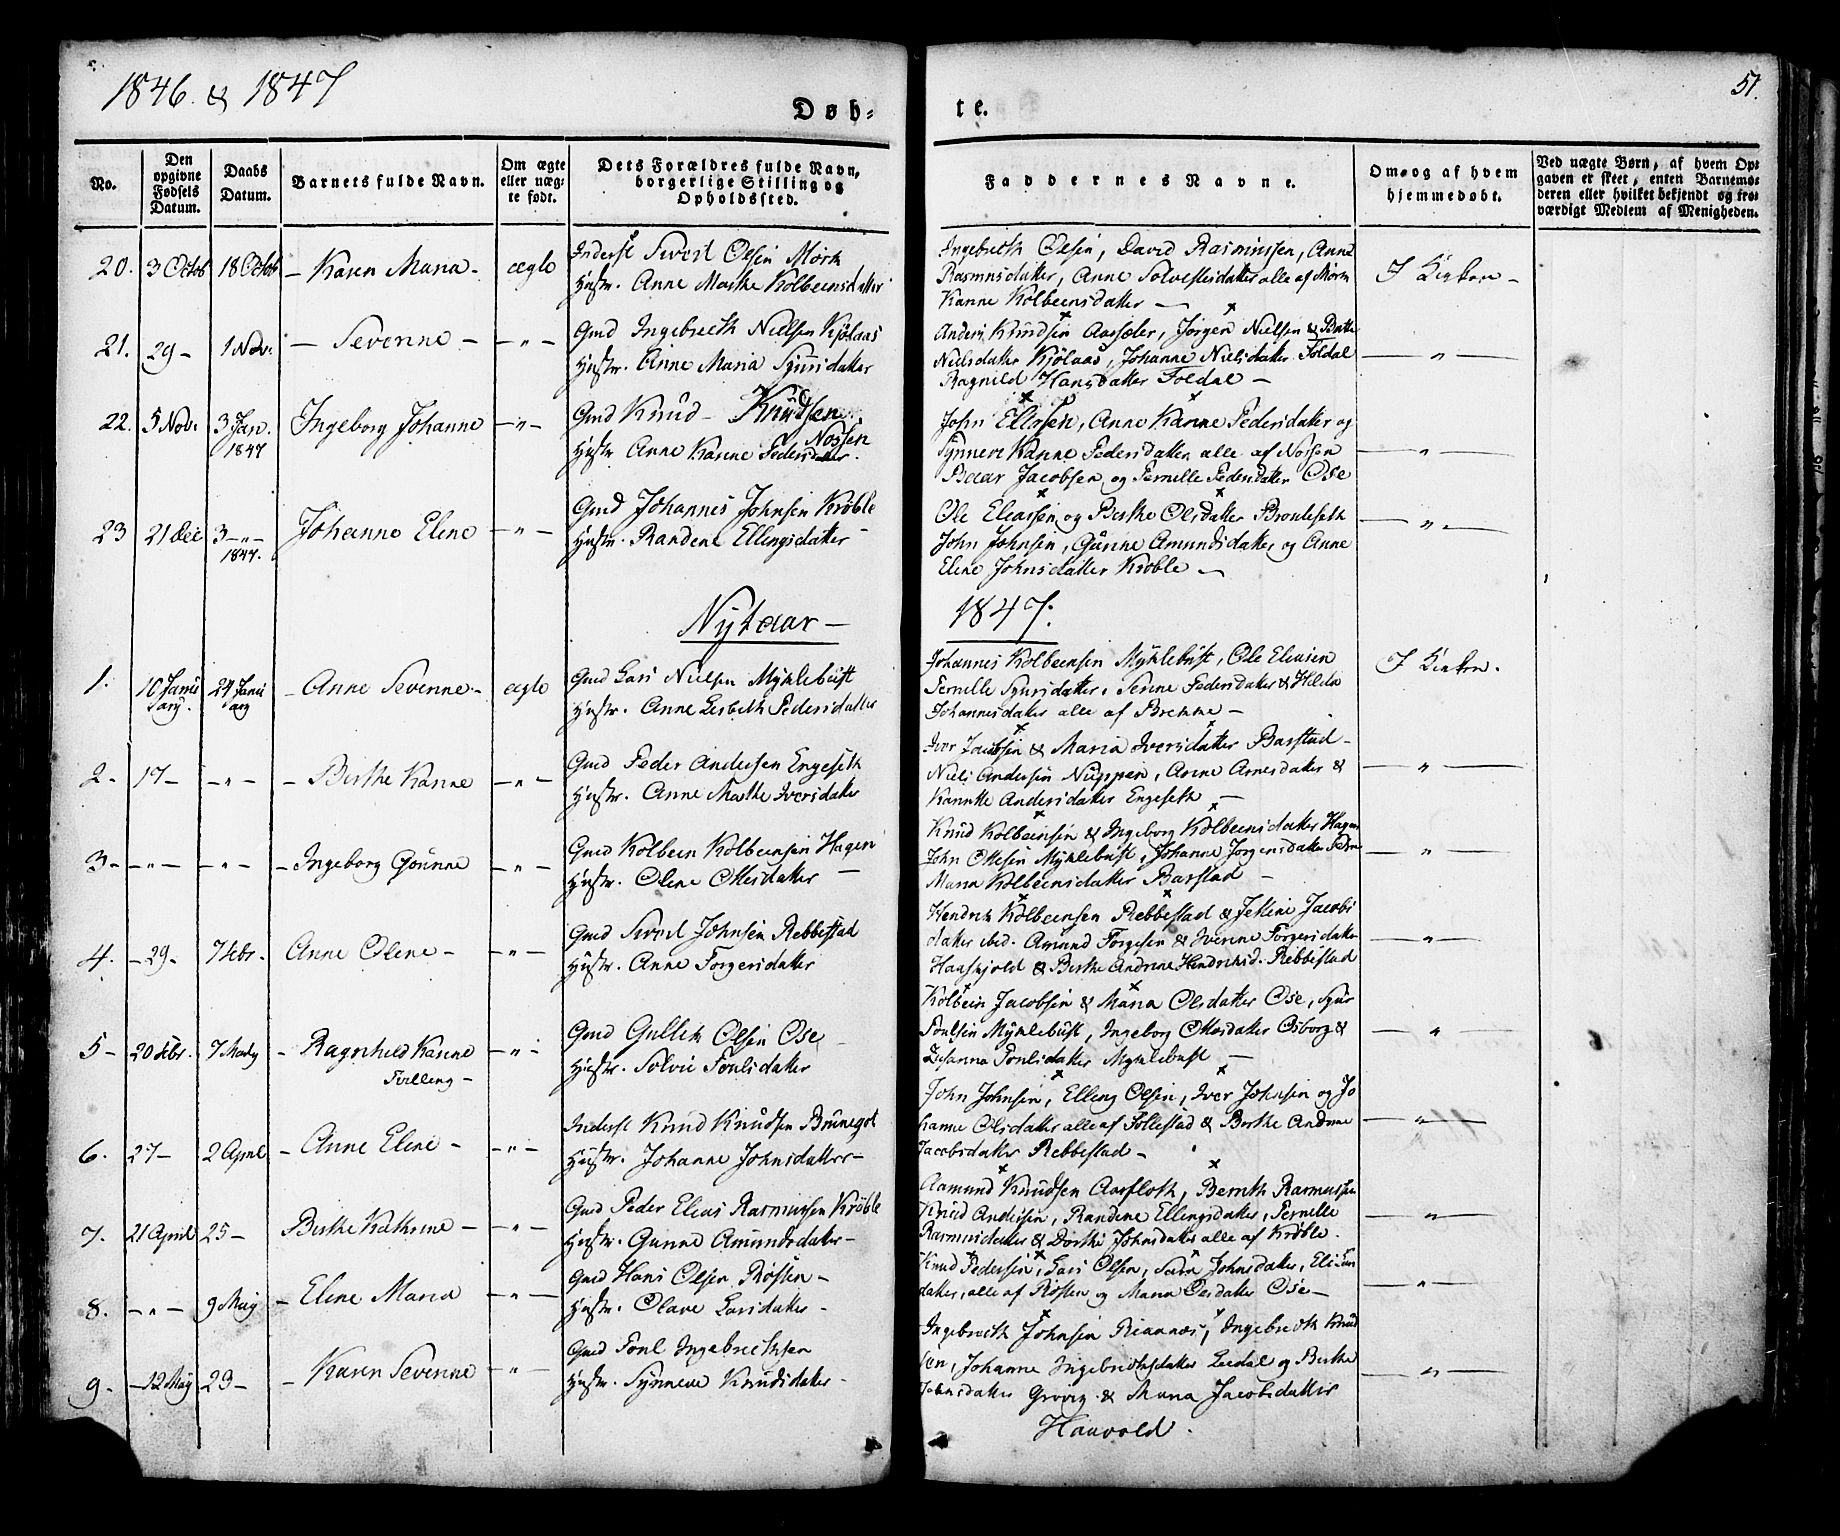 1846 & 1847
51.
Døb-
te.
No.
Den opgivne Fødsels Datum.
Daabs Datum.
Barnets fulde Navn.
Om ægte eller uægte født.
Dets Forældres fulde Navn, borgerlige Stilling og Opholdssted.
Faddernes Navne.
Om og af hvem hjemmedøbt.
Ved uægte Børn, af hvem Opgaven er skeet, enten Barnemoderen eller hvilket bekjendt og troværdigt Medlem af Menigheden.
20. 3 Octob 18 Octob - Karen Maria - ægte
Inderst Sivert Olsen Mork
Hustr. Anne Marthe Kolbeensdatter
Ingebreth Olsen, David Rasmussen, Anne
Rasmusdatter, Anne Solvesterdatter alle af Mork
Kanne Kolbeensdatter —
I Kirken -
21. 29 - 1 Nov. - Severine - — " —
Gmd Ingebreth Nielsen Kjölaas
Hustr. Anne Maria Synnisdatter
Anders Knudsen Aarsæter, Jörgen Nielsen & Berthe
Nielsdatter Kjölaas, Johanne Nielsdatter Foldal
Ragnild Hansdatter Foldal —
— " —
22. 5 Nov. 3 Jan. 1847 Ingeborg Johanne — " —
Gmd Knud - Knudsen
Nossen
Hustr Anne Karine Pedersdatter.
John Ellefsen, Anne Kanne Pedersdatter og
Synneve Kanne Pedersdatter, alle af Nossen
Baar Jacobsen og Pernille Pedersdatter Ose
— " —
23 21 Dec 3 — " — 1847. Johanne Elene — " —
Gmd Johannes Johnsen Kröble
Hustr. Randene Ellingsdatter —
Ole Eliassen og Berthe Olsdatter Brouteseth
John Johnsen, Gurine Amundsdatter og Anne
Elene Johnsdatter Kröble —
— " —
Nytaar —
1847.
1. 10 Janu ary. 24 Janu ary - Anne Severine - ægte
Gmd Lars Nielsen Myklebust
Hustr. Anne Lisbeth Pedersdatter
Johannes Kolbeensen Myklebust, Ole Eliasen
Pernille Synsdatter, Serine Pedersdatter & Helda
Johannesdatter alle af Brekke —
I Kirken.
2. 17 - — " — - Berthe Kanne — " —
Gmd Peder Andersen Engeseth
Hustr. Anne Marthe Iversdatter
Iver Jacobsen & Maria Iversdatter Barstad -
Niels Andersen Nuppen, Anne Arnesdatter &
Kanutte Andersdatter Engeseth —
— " —
3 - — " — — " — - Ingeborg Gounne — " —
Gmd Kolbeen Kolbeensen Hagen
Hustr. Olene Ottesdatter —
Knud Kolbeensen & Ingeborg Kolbeensdatter Hagen
John Ottesen Myklebust, Johanne Jorgensdatter
Maria Kolbeensdatter Barstad —
— " —
4. - 29 - 7 Febr. Anne Olene - — " —
Gmd Sivert Johnsen Rebbestad
Hustr. Anne Torgersdatter
Hendrik Kolbeensen Rebbestad & Jettine Jacobs
datter ibid. Amund Torgersen & Iverine Torgersdatter
Haaskjold & Berthe Andrine Hendriksd. Rebbestad
— " —
5 - 20 Febr. 7 Marty - Ragnhild Kanne — " —
Tvilling -
Gmd Gullik Olsen Ose
Hustr. Solvie Poulsdatter
Kolbein Jacobsen & Maria Olsdatter Ose, Syur
Poulsen Myklebust, Ingeborg Ottesdatter Osborg &
Susanna Poulsdatter Myklebust —
— " —
6. 27 - 2 April - Anne Elene - — " —
Inderst Knud Knudsen Brunegot
Hustr. Johanne Johnsdatter —
John Johnsen, Elling Olsen, Iver Johnsen og Jo
hanne Olsdatter alle af Follestad & Berthe Andrine
Jacobsdatter Rebbestad —
— " —
7. 21 April 25 - Berthe Kathrine - — " —
Gmd Peder Elias Rasmussen Kröble
Hustr. Gunne Amundsdatter -
Aamund Knudsen Aarfloth, Bernth Rasmussen
Knud Andersen, Randene Ellingsdatter, Pernille
Rasmusdatter & Dorthe Johnsdatter alle af Kröble.
— " —
8. — " — 9 May - Elene Maria — " —
Gmd Hans Olsen Rösten -
Hustr. Olave Larsdatter -
Knud Pedersen, Lars Olsen, Sara Johnsdatter, Eli Lars
datter, alle af Rösten og Maria Olsdatter Ose —
— " —
9. - 12 May 23 - - Karen Severine — " —
Gmd Poul Ingebrethsen
Hustr. Synneve Knudsdatter -
Ingebreth Johnsen Riannæs, Ingebreth Knud
sen, Johanne Ingebrethsdatter Ledal og Berthe
Johnsdatter Grovig & Maria Jacobsdatter
Hauvold.
— " —